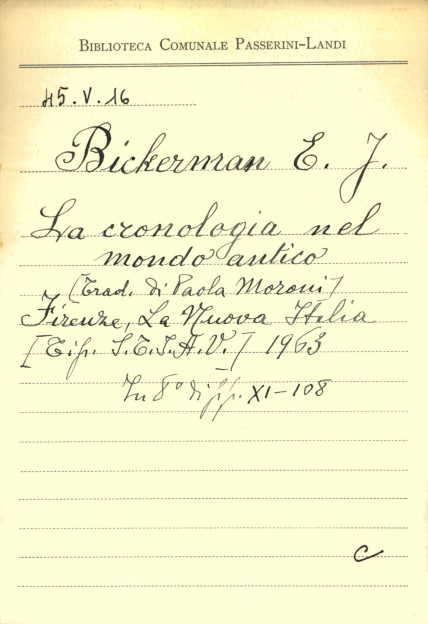 BIBLIOTECA COMUNALE PASSERINI-LANDI
45.V.16
Bickerman E. J.
La cronologia nel
mondo antico
[Trad. di Paola Moroni]
Firenze, La Nuova Italia
[Tip. S.T.I.A.V.] 1963
In 8° di pp. XI-108
C